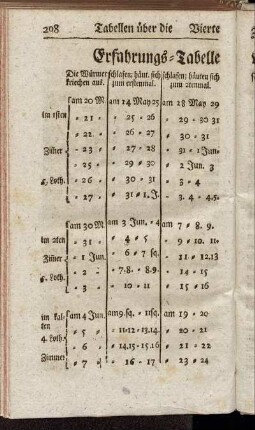 208 Tabellen über die Vierte
Erfahrungs-Tabelle
Die Würmer schlafen; häut. sich schlafen; häuten sich
kriechen aus. zum erstenmal. zum 2tenmal.
am 20 M am 24 May 25 am 28 May 29
im 1sten " 21 " 25 " 26 " 29 " 30 31
" 21. " 26 " 27 " 30 " 31
Zim̃er " 23 " 27 " 28 " 31 " 1 Jun.
" 25. " 29 " 30 " 2 Jun. 3
4. Loth. " 26 " 30 " 31 " 3 " 4
" 27 " 31 " 1. J. " 3. 4. " 5
am 30 M. am 3 Jun. " 4 am 7 " 8. 9.
im 2ten " 31 " 4 " 5 " 9 " 10. 11.
Zim̃er " 1 Jun. " 6 " 7 sq. " 11 " 12.13
6. Loth. " 2 " 7.8. " 8.9. " 14 " 15
" 3 " 10 " 11 " 15 " 16
im kal- am 4 Jun. am 9.sq. " 11sq. am 19 " 20
ten " 5 " 11.12 " 13.14. " 20 " 21
4. Loth. " 6 " 14.15 " 15.16 " 21 " 22
Zimmer " 7 " 16 " 17 " 23 " 24